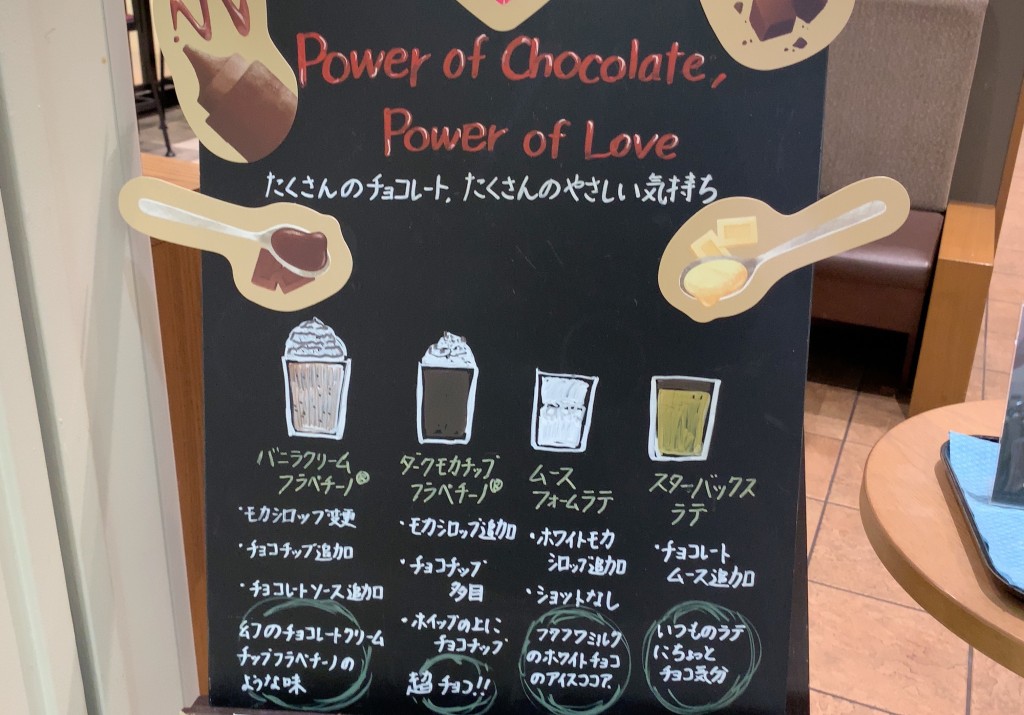 Power of Chocolate,
Power of Love
たくさんのチョコレート、たくさんのやさしい気持ち
バニラクリーム
フラペチーノ®
・モカシロップ変更
・チョコチップ追加
・チョコレートソース追加
幻のチョコレートクリーム
チップフラペチーノの
ような味
ダークモカチップ
フラペチーノ®
・モカシロップ追加
・チョコチップ
多目
・ホイップの上に
チョコチップ
超チョコ!!
ムース
フォームラテ
・ホワイトモカ
シロップ追加
・ショットなし
フワフワミルク
のホワイトチョコ
のアイスココア.
スターバックス
ラテ
・チョコレート
ムース追加
いつものラテ
にちょっと
チョコ気分